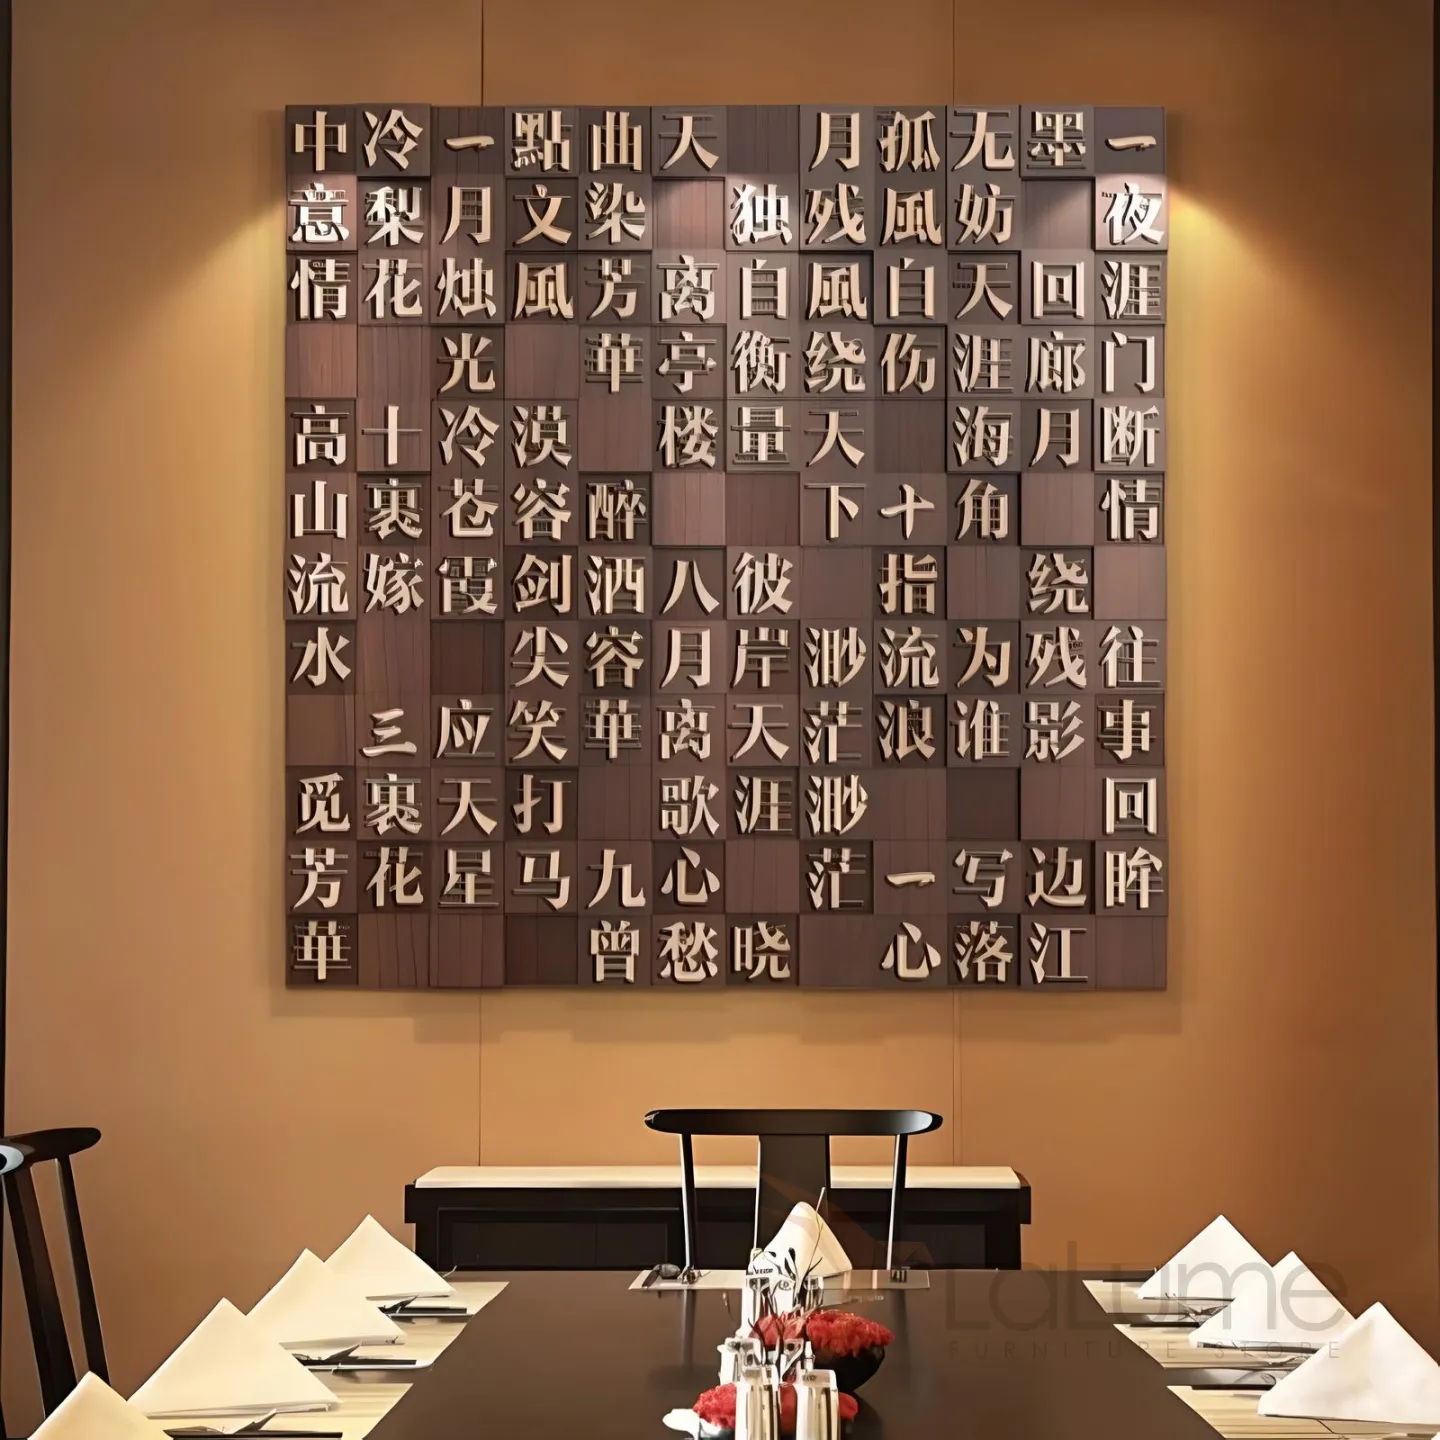 一夜涯门断情 往事回眸
墨 回廊月 绕残影 边江
无妨天涯海角 为谁 写落
孤風自伤 十指流浪 一心
月残風绕天下 渺茫渺茫
独自衡量 彼岸天涯 晓
天 离亭楼 八月离歌心愁
曲染芳華 醉洒容華 九曾
點文風 漠容剑尖笑打马
一月烛光冷苍霞 应天星
冷梨花 十裹嫁 三裹花
中意情 高山流水 觅芳華
LaLume
FURNITURE STORE